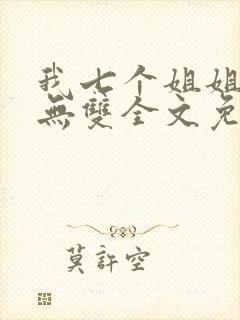 我七个姐姐
無雙全文免
莫許空